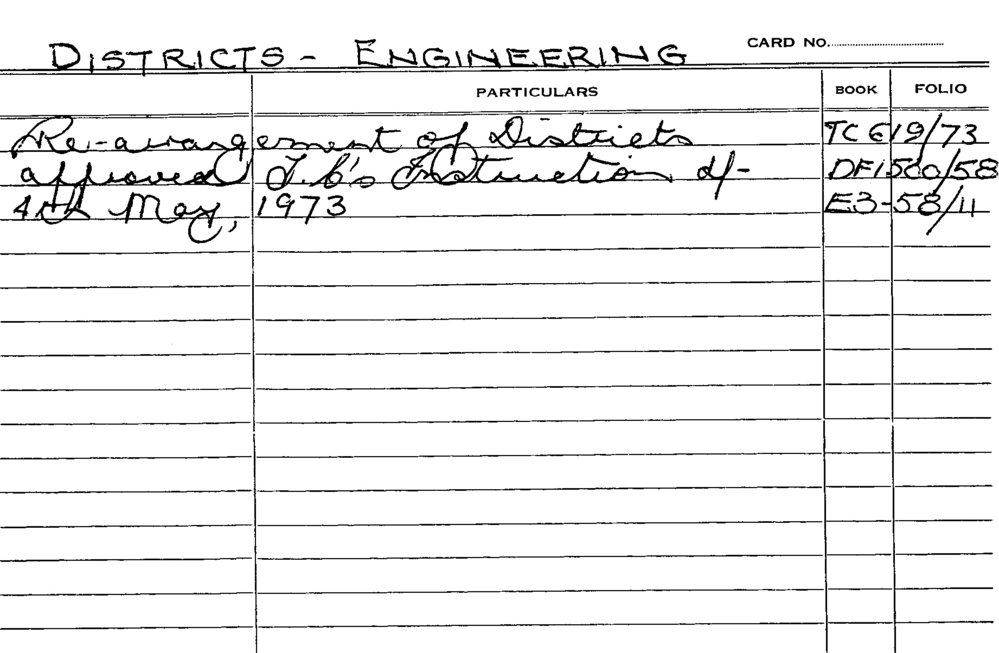 DISTRICTS - ENGINEERING CARD NO.
PARTICULARS BOOK FOLIO
Re-arrangement of Districts TC 619/73
approved T.C's Instruction d/- DF1500/58
4th May, 1973 E3-58/11